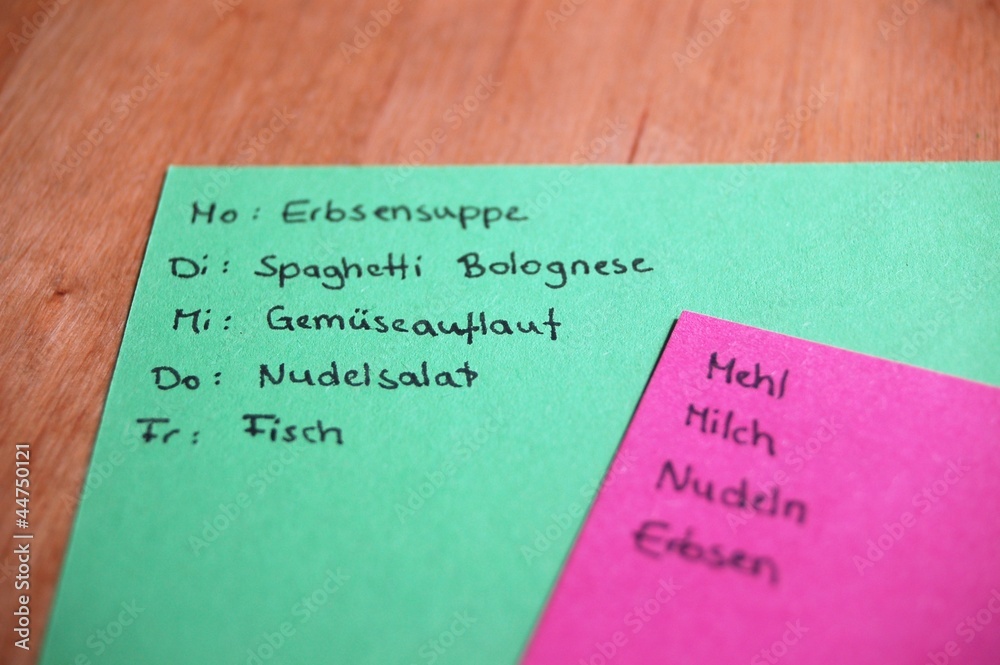 Mo: Erbsensuppe
Di: Spaghetti Bolognese
Mi: Gemüseauflauf
Do: Nudelsalat
Fr: Fisch
Mehl
Milch
Nudeln
Erbsen
Adobe Stock | #44750121